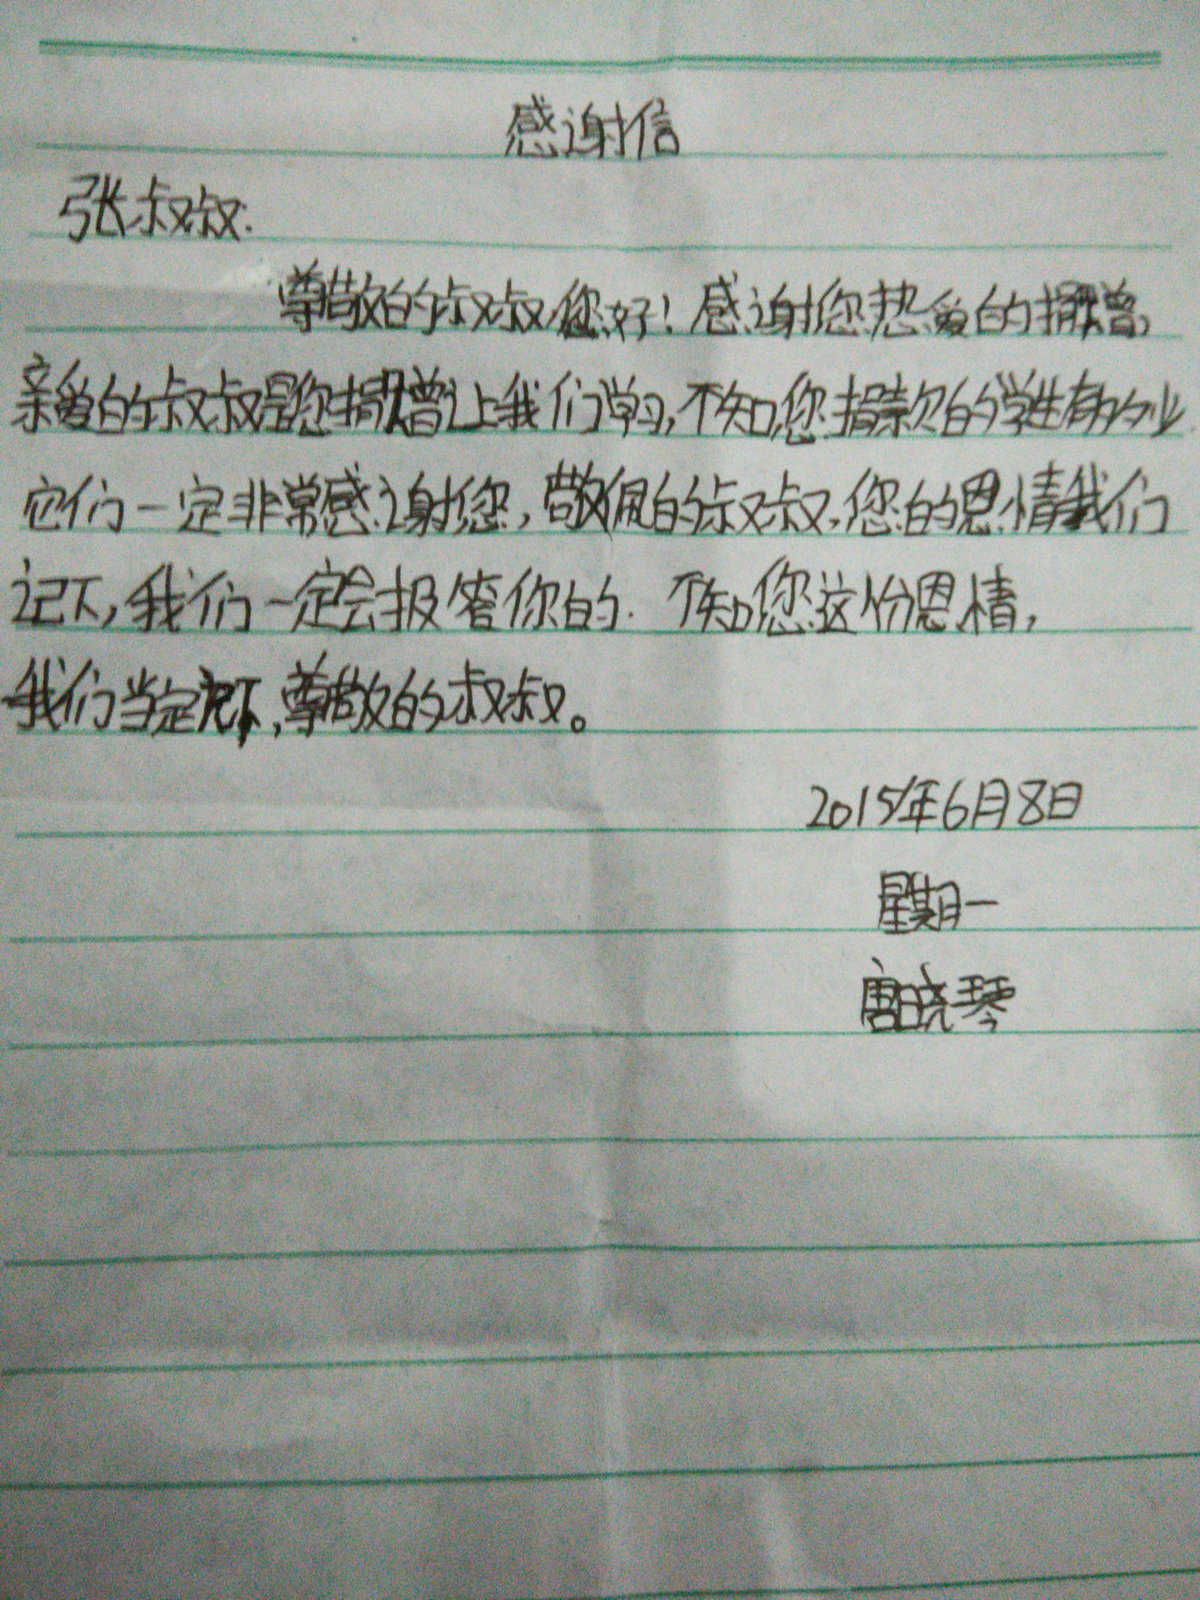 感谢信
张叔叔:
尊敬的叔叔您好！感谢您热爱的捐赠，
亲爱的叔叔是您捐赠让我们学习，不知您捐款的学生有多少
它们一定非常感谢您，敬佩的叔叔，您的恩情我们
记下，我们一定会报答你的. 不知您这份恩情，
我们当定记下，尊敬的叔叔。
2015年6月8日
星期一
唐晓琴